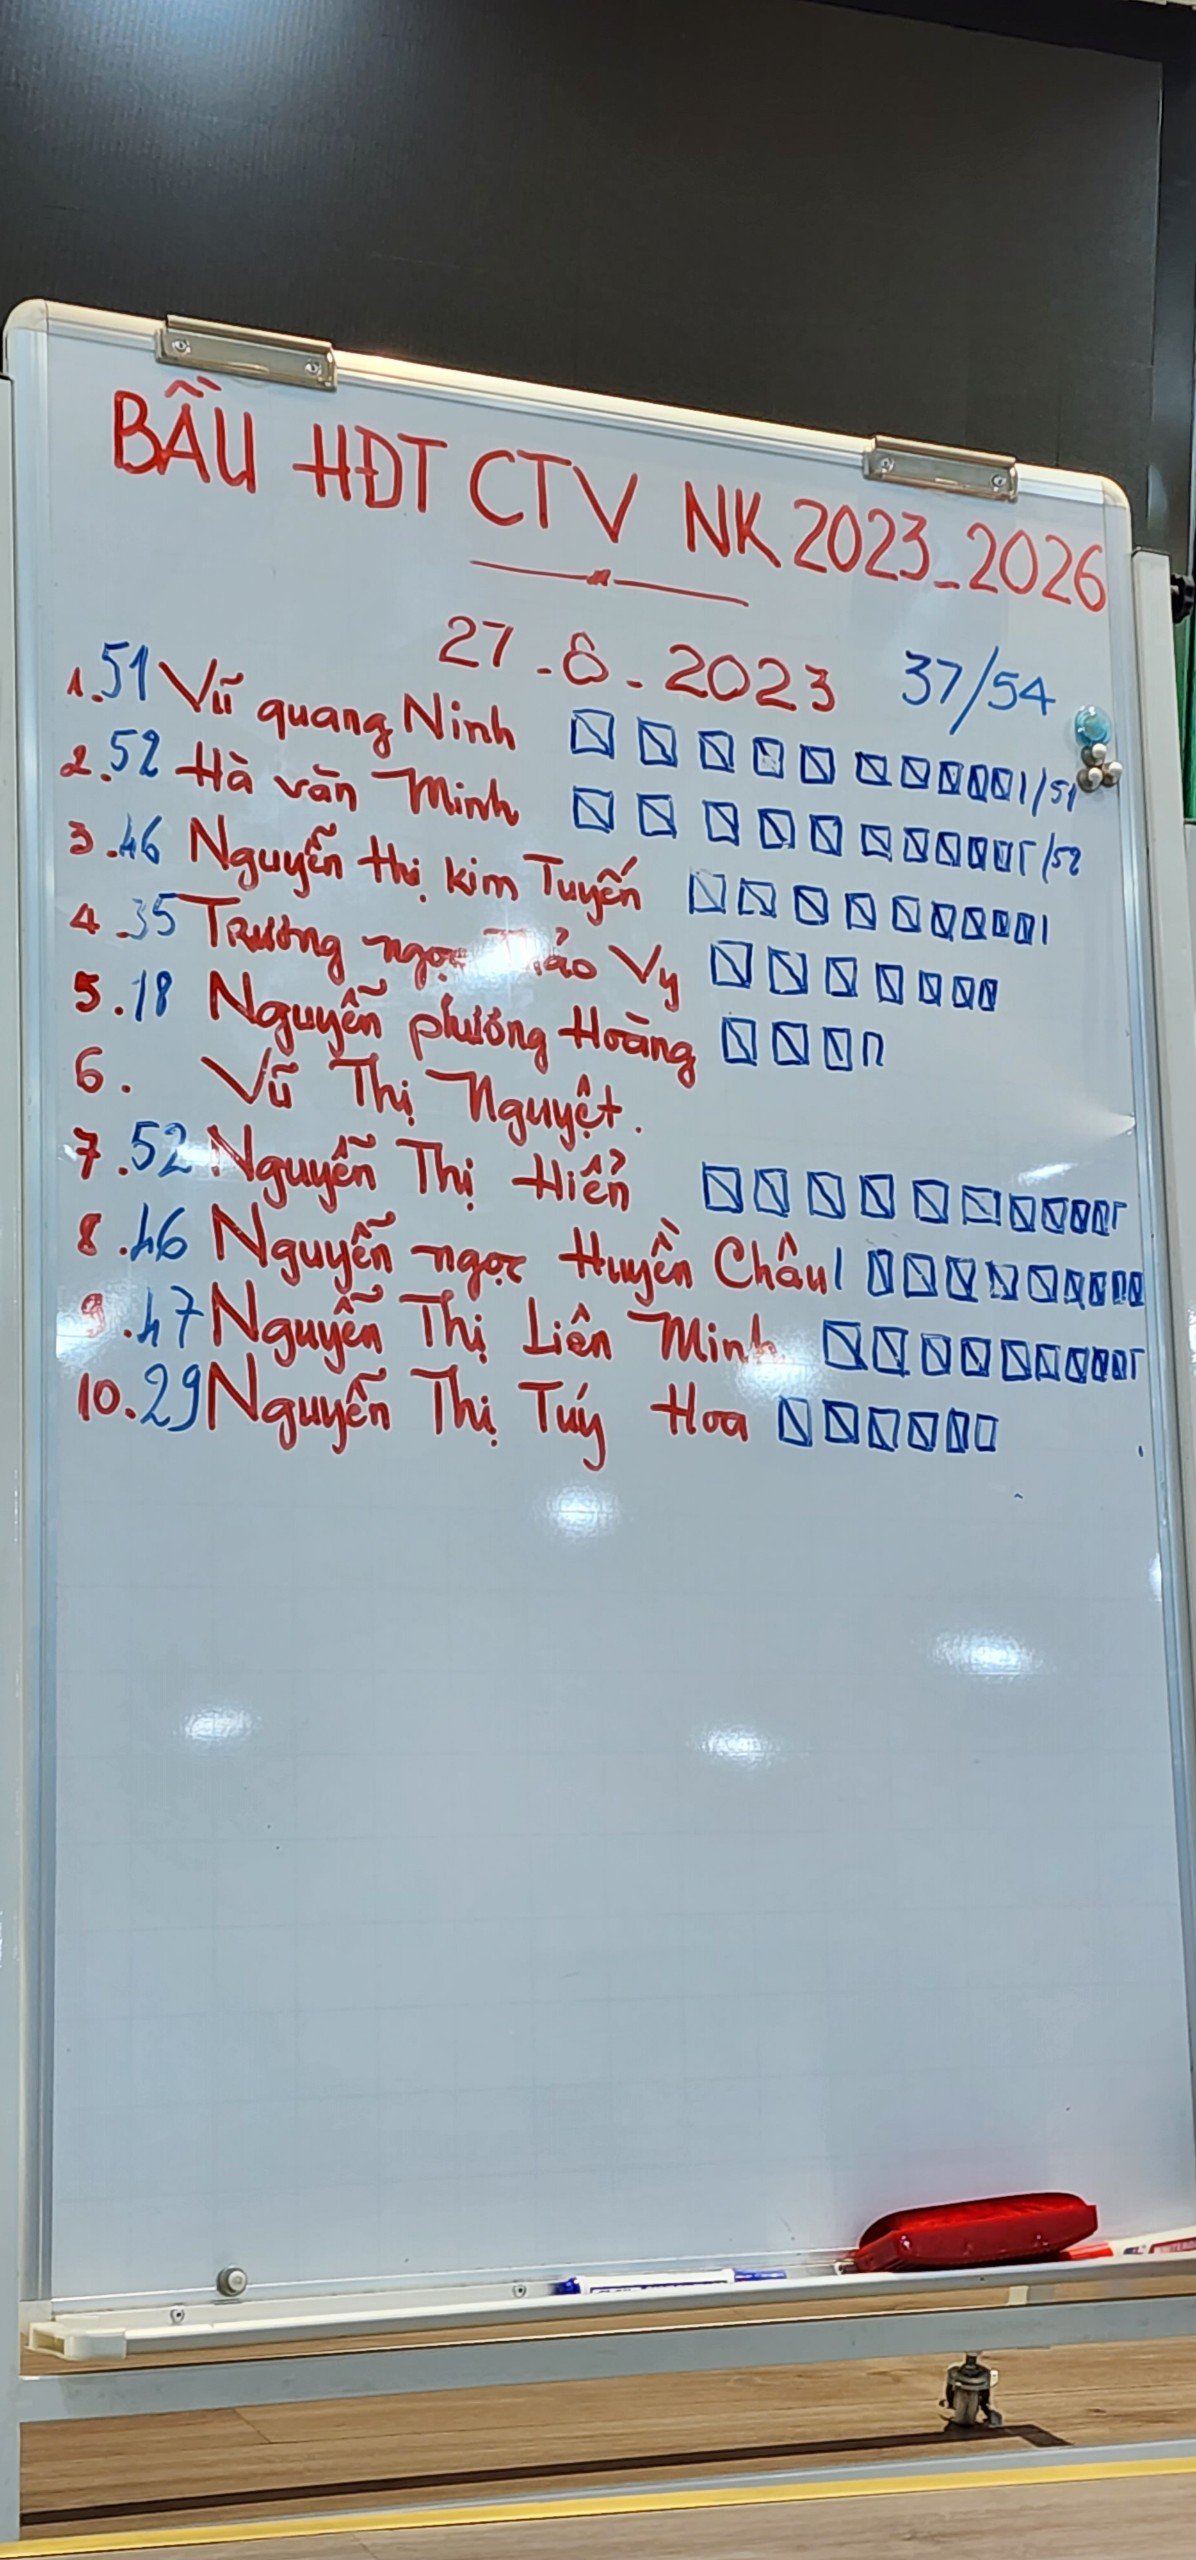 BẦU HĐT CTV NK 2023-2026
27-8-2023 37/54
1.51 Vũ quang Ninh /51
2.52 Hà văn Minh /52
3.46 Nguyễn thị kim Tuyến
4.35 Trương ngọc Thảo Vy
5.18 Nguyễn phương Hoàng
6. Vũ Thị Nguyệt.
7.52 Nguyễn Thị Hiển
8.46 Nguyễn ngọc Huyền Châu
9.47 Nguyễn Thị Liên Minh
10.29 Nguyễn Thị Túy Hoa